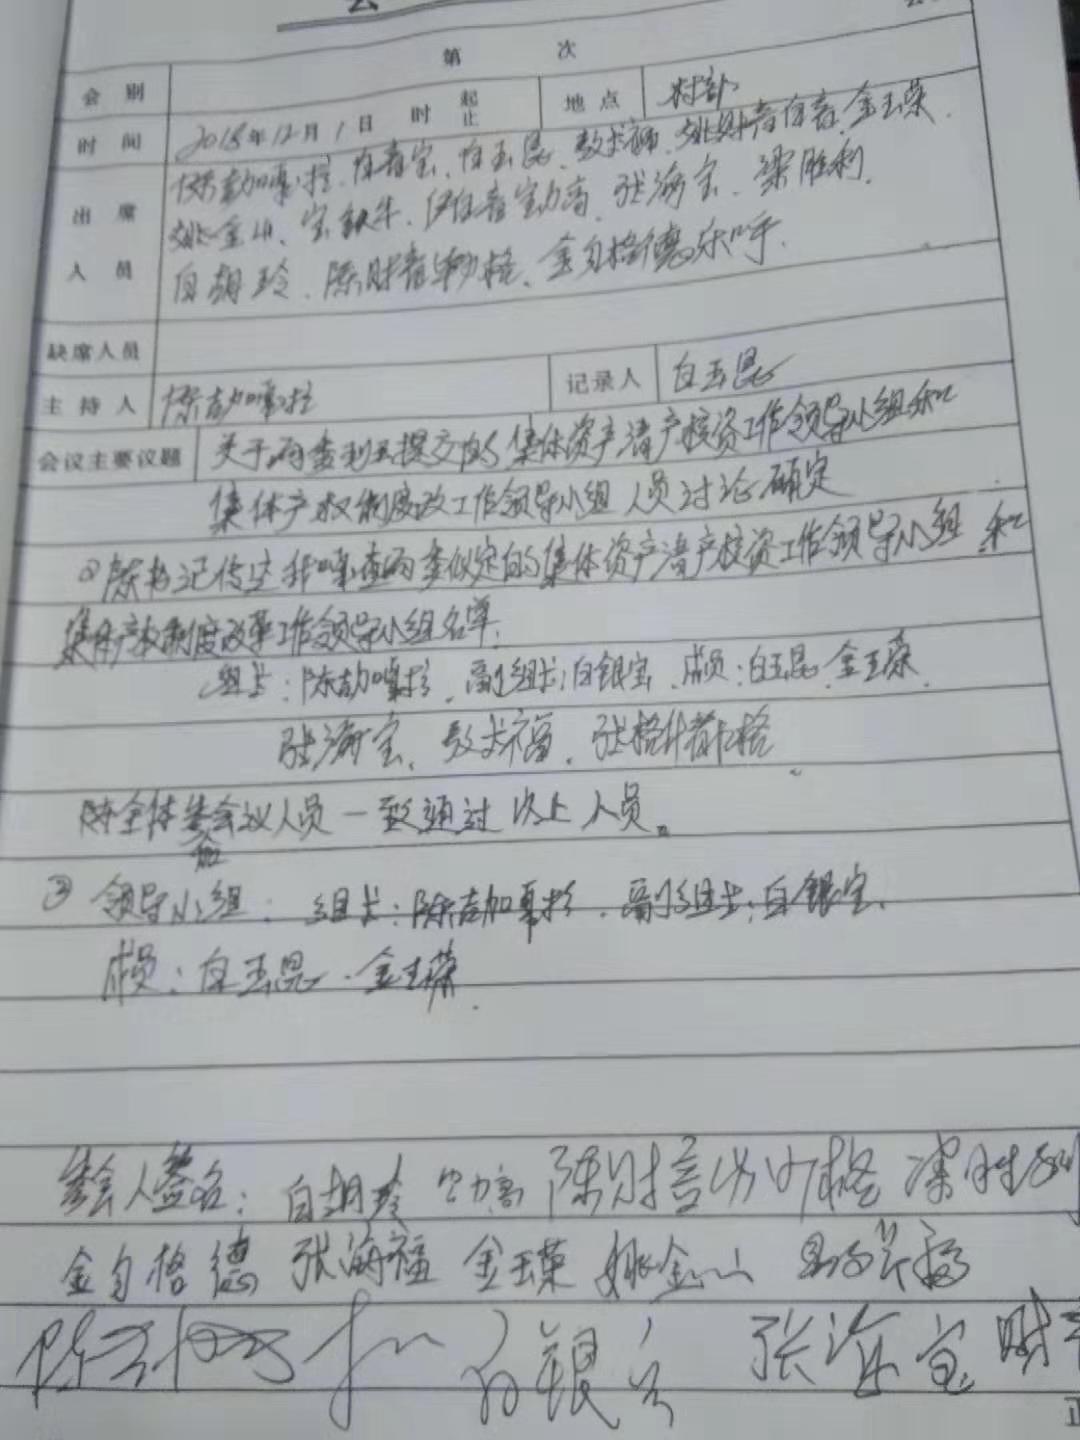 第 次
会别
时间 2018年12月1日 时 起止 地点 村部
出席人员 陈吉加嘎拉、白音宝、白玉昆、敖犬福、姚财音白音、金玉荣、
姚金山、宝铁牛、伊白音宝力高、张海宝、梁胜利、
白胡玲、陈财音 格、金乌格德乐呼、
缺席人员
主持人 陈吉加嘎拉 记录人 白玉昆
会议主要议题 关于两委 提交的集体资产清产核资工作领导小组和
集体产权制度改工作领导小组人员讨论确定
陈书记传达我嘎查两委拟定的集体资产清产核资工作领导小组和
集体产权制度改革工作领导小组名单.
组长:陈吉加嘎拉、副组长:白银宝、成员:白玉昆、金玉荣、
张海宝、敖犬福、张格什 格
全体参会议人员一致通过以上人员。
③ 领导小组:组长:陈吉加嘎拉、副组长:白银宝、
成员:白玉昆、金玉荣.
参会人签名:白胡玲 力高 陈财音 格 梁胜利
金乌格德 张海福 金玉荣 姚金山
陈 白银宝 张海宝 财